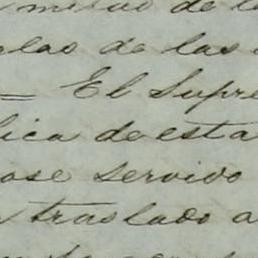 de l
de las
= El Supre
lica de esta
ose servido
traslado a